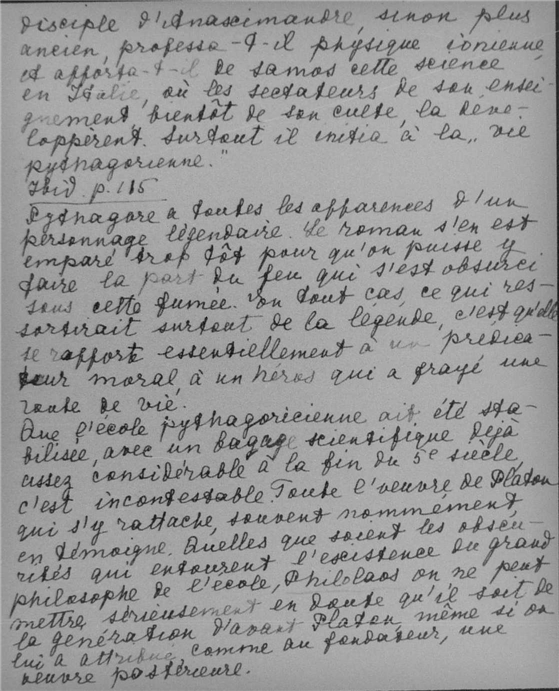 disciple d'Anascimandre, sinon plus
ancien, professa-t-il physique ionienne
et apporta-t-il de Samos cette science
en Italie, où les sectateurs de son ensei-
gnement, bientôt de son culte, la déve-
loppèrent. Surtout il initia à la „vie
pythagorienne."
Ibid. p. 115
Pythagore a toutes les apparences d'un
personnage légendaire. Le roman s'en est
emparé trop tôt pour qu'on puisse y
faire la part du feu qui s'est obscurci
sous cette fumée. En tout cas, ce qui res-
sortirait surtout de la légende, c'est qu'elle
se rapporte essentiellement à un prédica-
teur moral, à un héros qui a frayé une
route de vie.
Que l'école pythagoricienne ait été sta-
bilisée, avec un bagage scientifique déjà
assez considérable à la fin du 5e siècle,
c'est incontestable. Toute l'oeuvre de Platon
qui s'y rattache, souvent nommément,
en témoigne. Quelles que soient les obscu-
rités qui entourent l'escistence du grand
philosophe de l'école, Philolaos on ne peut
mettre sérieusement en doute qu'il soit de
la génération d'avant Platon, même si on
lui a attribué comme au fondateur, une
oeuvre postérieure.